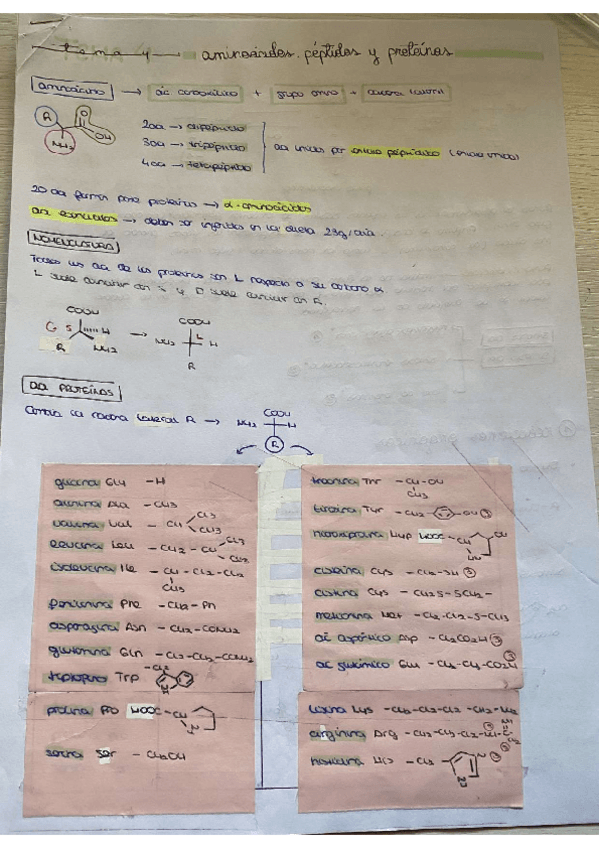 Tema 4 — aminoácidos, péptidos y proteínas
aminoácido → ác carboxílico + grupo amino + cadena lateral
R
O
OH
NH2
2aa → dipéptido
3aa → tripéptido
4aa → tetrapéptido
aa unidos por enlace peptídico
20 aa forman parte proteínas → α-aminoácidos
aa esenciales → deben ser ingeridos en la dieta 29g/día
NOMENCLATURA
Todos los aa de las proteínas son L respecto a su carbono α
L suele coincidir con S y D suele coincidir con R.
COOH
S
H
R
NH2
→
COOH
NH2
L
H
R
aa PROTEÍNAS
Cambia la cadena lateral R →
COOH
NH2
H
R
glicina Gly -H
alanina Ala -CH3
valina Val - CH
CH3
CH3
leucina Leu - CH2 - CH
CH3
CH3
isoleucina Ile - CH - CH2 - CH3
CH3
fenilalanina Phe - CH2 - Ph
asparagina Asn - CH2 - CONH2
glutamina Gln - CH2 - CH2 - CONH2
triptófano Trp -CH2
prolina Pro HOOC - CH
serina Ser - CH2OH
treonina Thr - CH - OH
CH3
tirosina Tyr - CH2 OH
hidroxiprolina Hyp HOOC - CH OH
cisteína Cys - CH2 - SH
cistina Cys - CH2S - SCH2 -
metionina Met - CH2 - CH2 - S - CH3
ác aspártico Asp - CH2CO2H
ác glutámico Glu - CH2 - CH2 - CO2H
lisina Lys - CH2 - CH2 - CH2 - CH2 - NH2
arginina Arg - CH2 - CH2 - CH2 - NH - C
histidina His - CH2